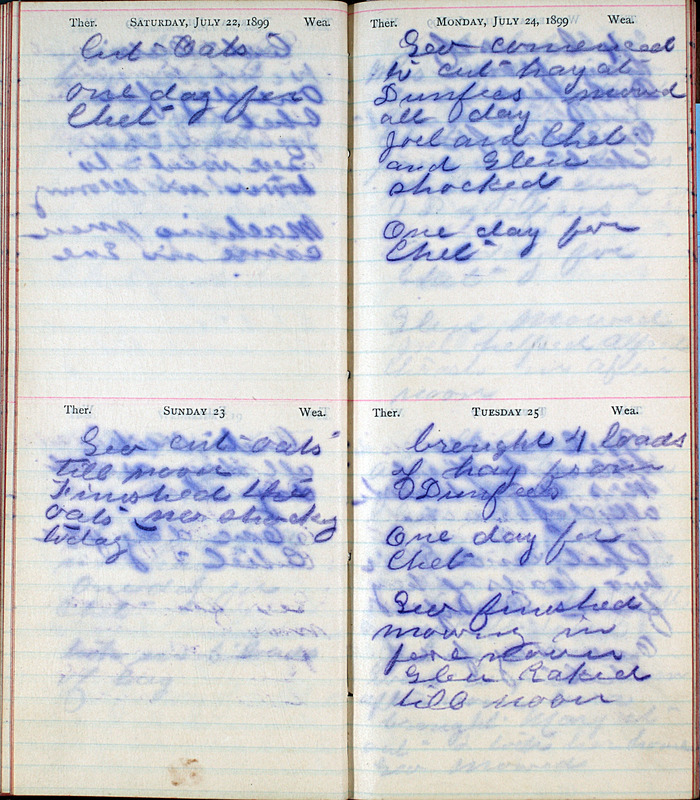 Ther. SATURDAY, JULY 22, 1899 Wea.
Cut Oats
one day for
Chet
Ther. SUNDAY 23 Wea.
Geo cut oats
till noon
Finished the
oats no shocking
today
Ther. MONDAY, JULY 24, 1899 Wea.
Geo comenced
to cut hay at
Dunfees mowed
all day
Joel and Chet
and Glen
shocked
One day for
Chet
Ther. TUESDAY 25 Wea.
brought 4 loads
of hay from
Dunfees
One day for
Chet
Geo finished
mowing in
fore noon
Glen Raked
till noon